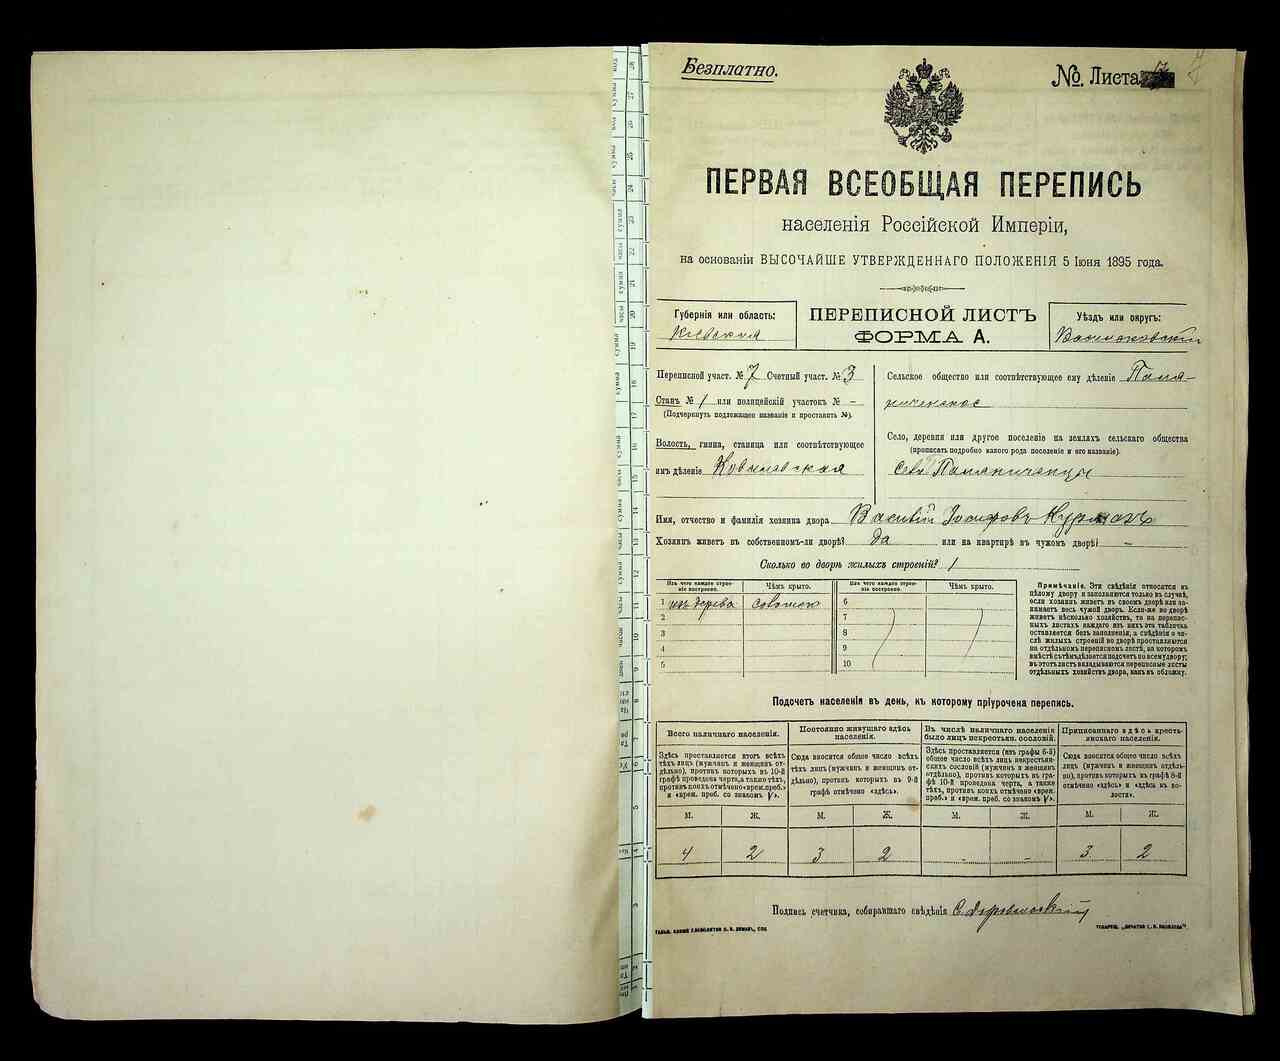 Безплатно.
№ Листа
ПЕРВАЯ ВСЕОБЩАЯ ПЕРЕПИСЬ
населенія Россійской Имперіи,
на основаніи ВЫСОЧАЙШЕ УТВЕРЖДЕННАГО ПОЛОЖЕНІЯ 5 Іюня 1895 года.
Губернія или область:
Кіевская
ПЕРЕПИСНОЙ ЛИСТЪ
ФОРМА А.
Уѣздъ или округъ:
Васильковскій
Переписной участ. № 7 Счетный участ. № 3
Станъ № 1 или полицейскій участокъ № -
(Подчеркнуть подлежащее названіе и проставить №).
Волость, гмина, станица или соотвѣтствующее
имъ дѣленіе
Сельское общество или соотвѣтствующее ему дѣленіе
Село, деревня или другое поселеніе на земляхъ сельскаго общества
(прописать подробно какого рода поселеніе и его названіе).
село
Имя, отчество и фамилія хозяина двора Василій Іосифовъ
Хозяинъ живетъ въ собственномъ-ли дворѣ? да или на квартирѣ въ чужомъ дворѣ? -
Сколько во дворѣ жилыхъ строеній? 1
Изъ чего каждое строеніе построено.
Чѣмъ крыто.
Изъ чего каждое строеніе построено.
Чѣмъ крыто.
1 изъ дерева соломою 6
2 7
3 8
4 9
5 10
Примѣчаніе. Эти свѣдѣнія относятся къ
цѣлому двору и заполняются только въ случаѣ,
если хозяинъ живетъ въ своемъ дворѣ или занимаетъ
весь чужой дворъ. Если-же во дворѣ
живетъ нѣсколько хозяйствъ, то на переписныхъ
листахъ каждаго изъ нихъ эта табличка
оставляется безъ заполненія, а свѣдѣнія о числѣ
жилыхъ строеній во дворѣ проставляются
на отдѣльномъ переписномъ листѣ, на которомъ
вмѣстѣ съ тѣмъ дѣлается подсчетъ по всему двору;
въ этотъ листъ вкладываются переписные листы
отдѣльныхъ хозяйствъ двора, какъ въ обложку.
Подсчетъ населенія въ день, къ которому пріурочена перепись.
Всего наличнаго населенія.
Здѣсь проставляется итогъ всѣхъ
тѣхъ лицъ (мужчинъ и женщинъ отдѣльно),
противъ которыхъ въ 10-й
графѣ проведена черта, а также тѣхъ,
противъ коихъ отмѣчено «врем. преб.»
и «врем. преб. со знакомъ V».
Постоянно живущаго здѣсь
населенія.
Сюда вносится общее число всѣхъ
тѣхъ лицъ (мужчинъ и женщинъ отдѣльно),
противъ которыхъ въ 9-й
графѣ отмѣчено «здѣсь».
Въ числѣ наличнаго населенія
было лицъ некрестьян. сословій.
Здѣсь проставляется (изъ графы 6-й)
общее число всѣхъ лицъ некрестьянскихъ
сословій (мужчинъ и женщинъ
отдѣльно), противъ которыхъ въ графѣ
10-й проведена черта, а также
тѣхъ, противъ коихъ отмѣчено «врем.
преб.» и «врем. преб. со знакомъ V».
Приписаннаго здѣсь крестьянскаго
населенія.
Сюда вносится общее число всѣхъ
лицъ (мужчинъ и женщинъ отдѣльно),
противъ которыхъ въ графѣ 8-й
отмѣчено «здѣсь» и «здѣсь въ волости».
М. Ж. М. Ж. М. Ж. М. Ж.
4 2 3 2 - - 3 2
Подпись счетчика, собиравшаго свѣдѣнія